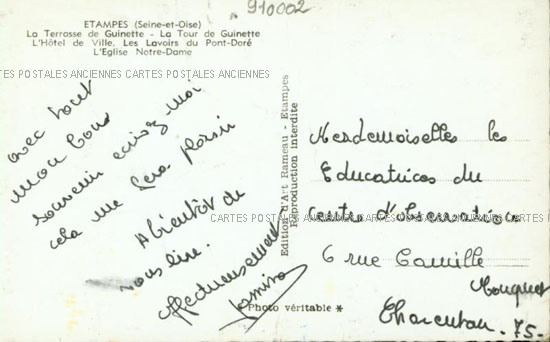 910002
ETAMPES (Seine-et-Oise)
La Terrasse de Guinette - La Tour de Guinette
L'Hôtel de Ville. Les Lavoirs du Pont-Doré
L'Eglise Notre-Dame
CARTES POSTALES ANCIENNES CARTES POSTALES ANCIENNES
avec tout
mon bon
souvenir écrivez moi
cela me fera plaisir
A bientôt de
vous lire.
affectueusement
Edition d'Art Rameau - Etampes
Reproduction interdite
Mesdemoiselles les
Educatrices du
Centre d'observation
CARTES POSTALES ANCIENNES CARTES POSTALES ANCIENNES
6 rue Camille
Mouquet
Charenton - 75 -
* Photo véritable *